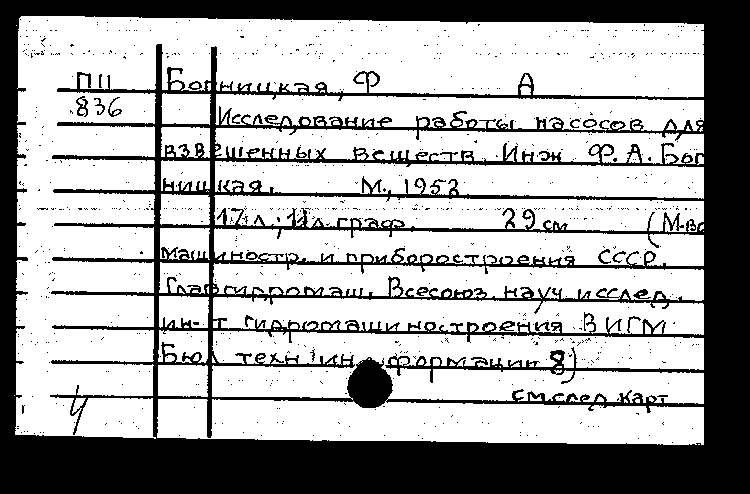 ПII Богницкая, Ф А
836 Исследование работы насосов для
взвешенных веществ. Инж. Ф.А. Бог
ницкая. М., 1952
17 л.; 11 л. граф. 29 см (М-во
машиностр. и приборостроения СССР.
Главгидромаш. Всесоюз. науч. исслед.
ин-т гидромашиностроения ВИГМ
Бюл техн информации 8)
см.след.карт